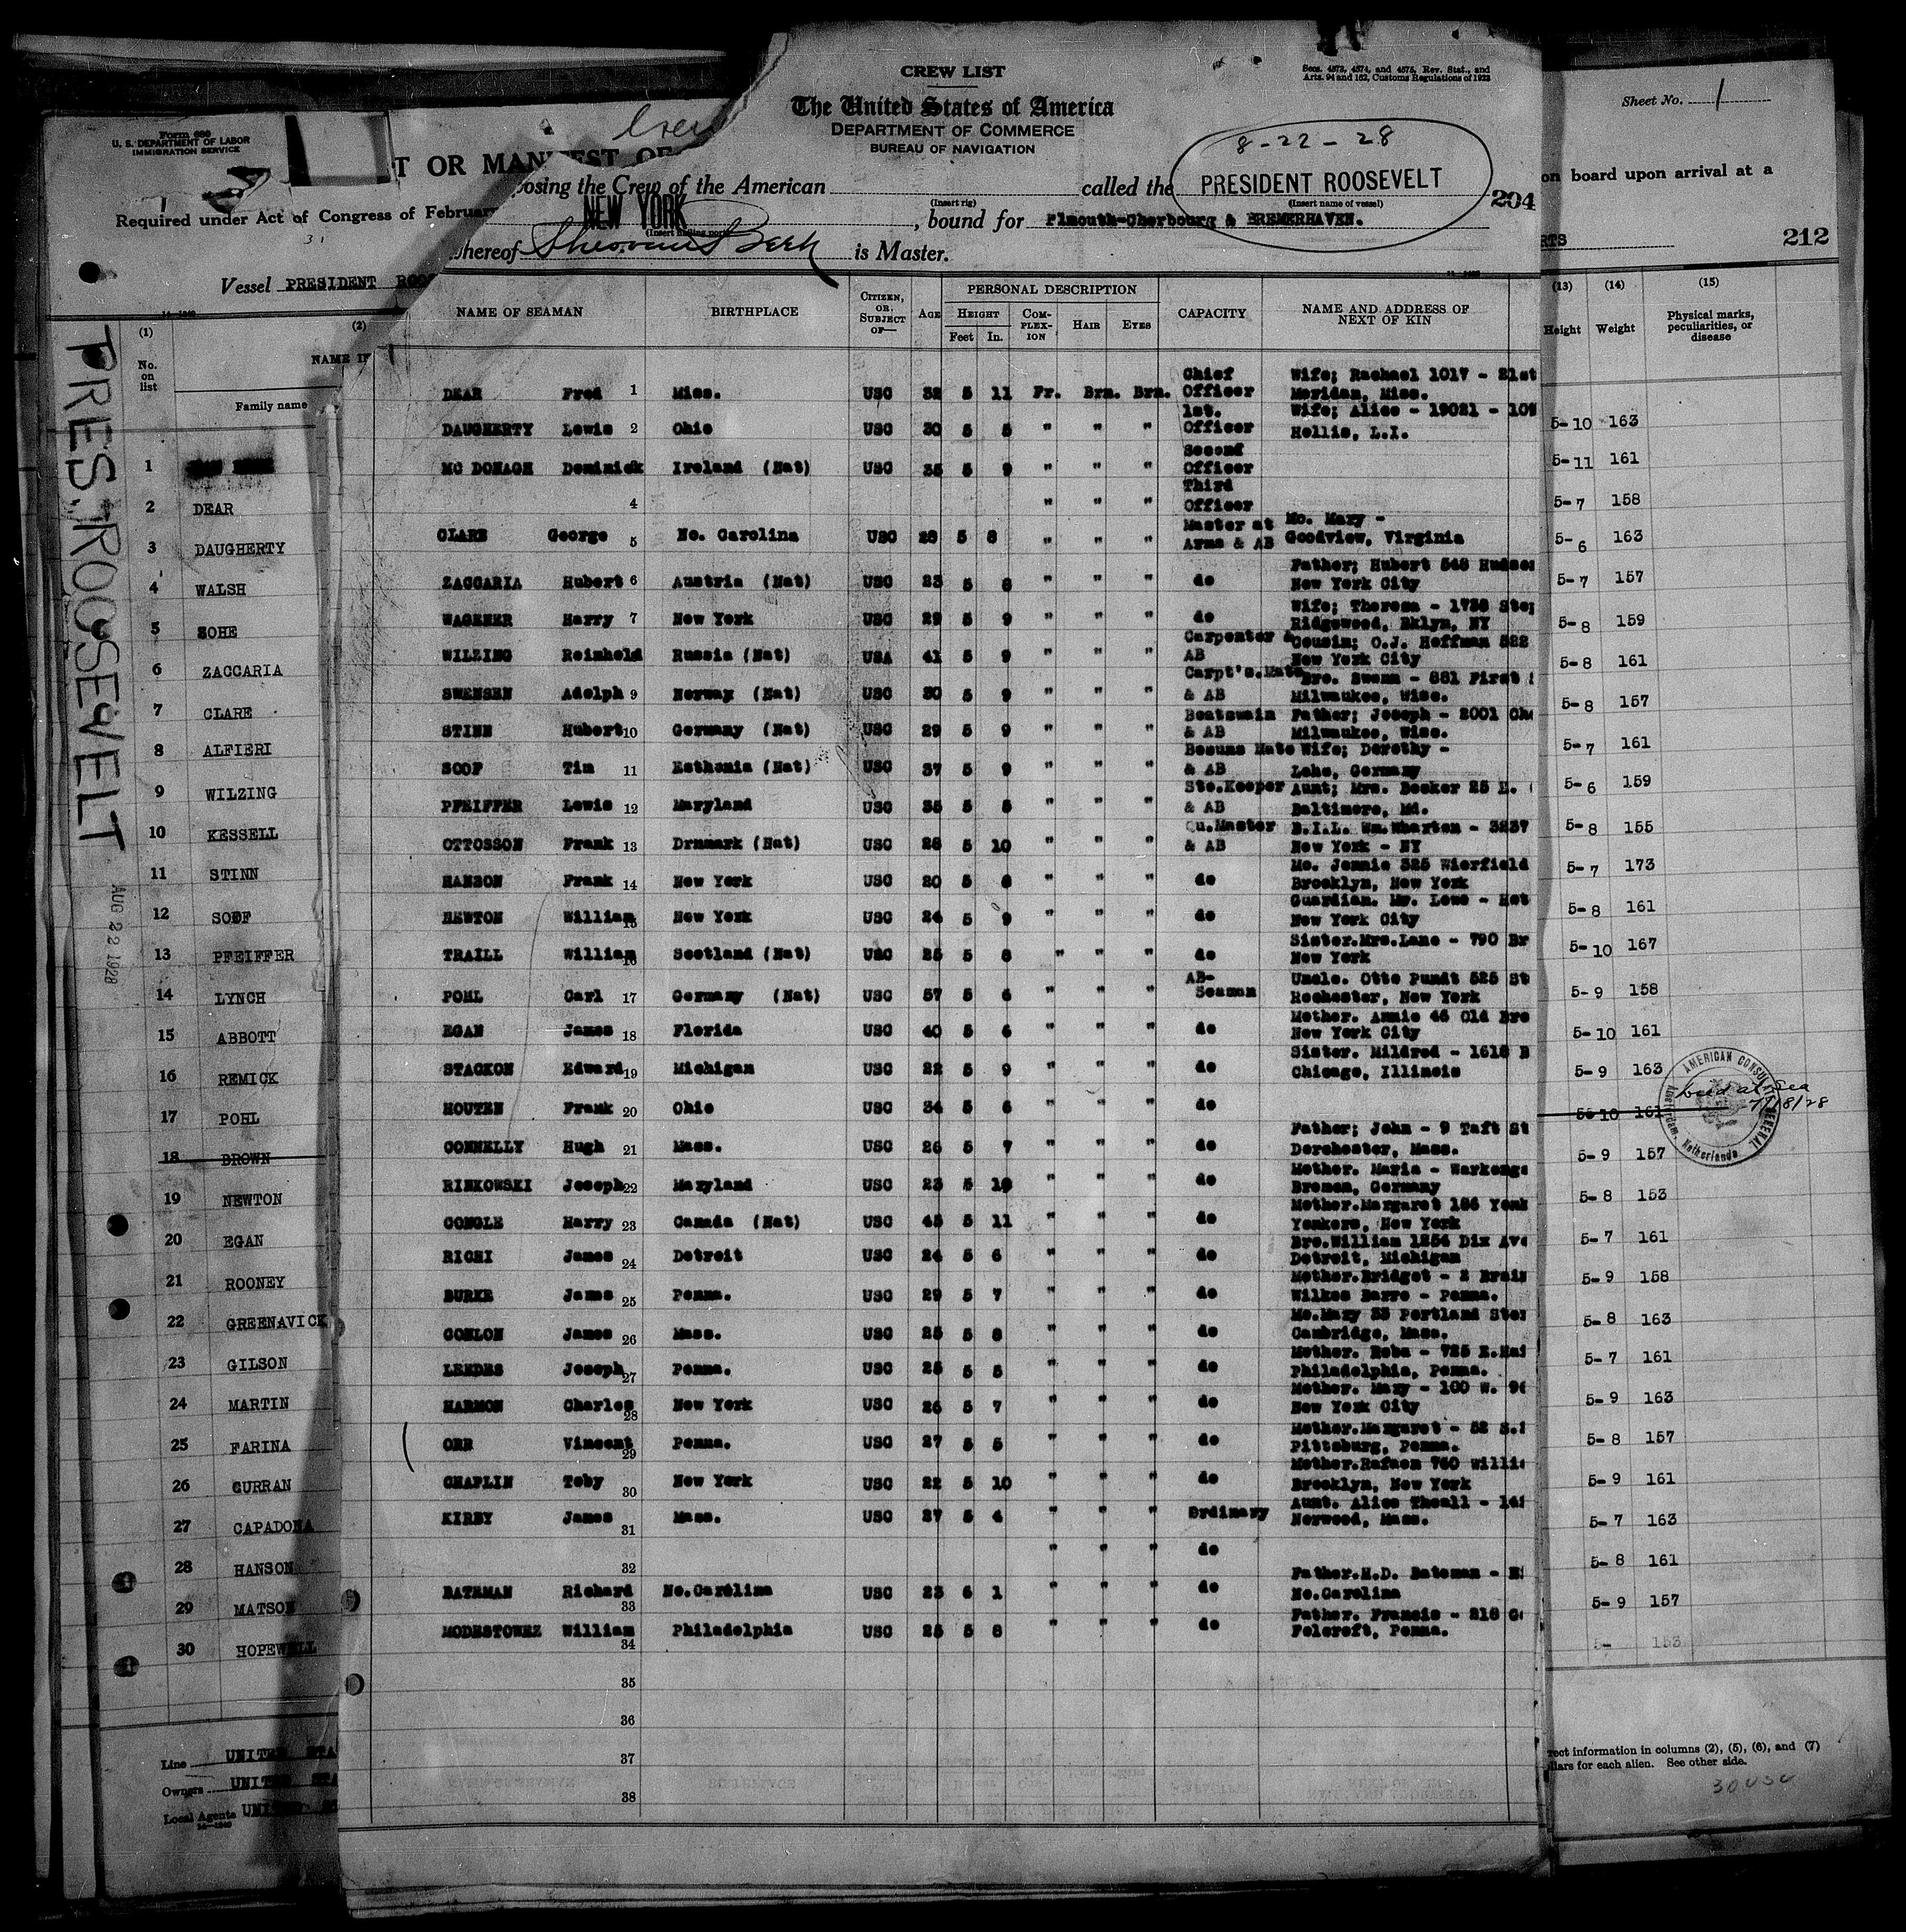 CREW LIST
Secs. 4573, 4574, and 4575, Rev. Stat., and
Arts. 94 and 152, Customs Regulations of 1923
The United States of America
DEPARTMENT OF COMMERCE
BUREAU OF NAVIGATION
8-22-28
osing the Crew of the American called the PRESIDENT ROOSEVELT 204
(Insert rig) (Insert name of vessel)
NEW YORK , bound for Plmouth-Cherbourg & BREMERHAVEN.
(Insert hailing port)
hereof is Master.
NAME OF SEAMAN BIRTHPLACE CITIZEN, OR SUBJECT OF— AGE PERSONAL DESCRIPTION CAPACITY NAME AND ADDRESS OF NEXT OF KIN
HEIGHT COMPLEXION HAIR EYES
Feet In.
DEAR Fred 1 Miss. USC 32 5 11 Fr. Brn. Brn. Chief Officer Wife; Rachael 1017 - 21st Meridan, Miss.
DAUGHERTY Lewis 2 Ohio USC 30 5 8 " " " 1st. Officer Wife; Alice - 19021 - 109 Hollis, L.I.
MC DONAGH Dominick Ireland (Nat) USC 35 5 9 " " " Second Officer
4 " " " Third Officer
CLARE George 5 No. Carolina USC 28 5 8 " " " Master at Arms & AB Mo. Mary - Goodview, Virginia
ZACCARIA Hubert 6 Austria (Nat) USC 23 5 8 " " " do Father; Hubert 548 Hudson New York City
WAGENER Harry 7 New York USC 29 5 9 " " " do Wife; Theresa - 1738 Ridgewood, Bklyn, NY
WILZING Reinhold Russia (Nat) USA 41 5 9 " " " Carpenter & AB Cousin; O.J. Hoffman 522 New York City
SWENSEN Adolph 9 Norway (Nat) USC 30 5 9 " " " Carpt's.Mate & AB Bro. Swann - 881 First Milwaukee, Wisc.
STINN Hubert 10 Germany (Nat) USC 29 5 9 " " " Boatswain & AB Father; Joseph - 2001 Milwaukee, Wisc.
SOOF Tim 11 Esthonia (Nat) USC 37 5 9 " " " Bosuns Mate & AB Wife; Dorothy - Lehe, Germany
PFEIFFER Lewis 12 Maryland USC 35 5 8 " " " Sto.Keeper & AB Aunt; Mrs. Becker 25 E. Baltimore, Md.
OTTOSSON Frank 13 Drnmark (Nat) USC 28 5 10 " " " Qu.Master & AB B.I.L. Wm.Wharton - 3237 New York - NY
HANSON Frank 14 New York USC 20 5 6 " " " do Mo. Jennie 325 Wierfield Brooklyn, New York
NEWTON William 15 New York USC 24 5 9 " " " do Guardian. Mr. Lowe - New York City
TRAILL William 16 Scotland (Nat) USC 25 5 8 " " " do Sister.Mrs.Lane - 790 Br New York
POHL Carl 17 Germany (Nat) USC 57 5 6 " " " AB-Seaman Uncle. Otto Pundt 525 St Rochester, New York
EGAN James 18 Florida USC 40 5 6 " " " do Mother. Annie 46 Old Bro New York City
STACKON Edward 19 Michigan USC 22 5 9 " " " do Sister. Mildred - 1618 Chicago, Illinois
HOUTEN Frank 20 Ohio USC 34 5 6 " " " do
CONNELLY Hugh 21 Mass. USC 26 5 7 " " " do Father; John - 9 Taft St Dorchester, Mass.
RINKOWSKI Joseph 22 Maryland USC 23 5 10 " " " do Mother. Maria - Bremen, Germany
CONGLE Harry 23 Canada (Nat) USC 45 5 11 " " " do Mother.Margaret 186 Yonk Yonkers, New York
RICHI James 24 Detroit USC 24 5 6 " " " do Bro.William 1254 Dix Ave Detroit, Michigan
BURKE James 25 Penna. USC 29 5 7 " " " do Mother.Bridget - 2 Wilkes Barre - Penna.
CONLON James 26 Mass. USC 25 5 8 " " " do Mo.Mary 33 Portland Cambridge, Mass.
LEEDES Joseph 27 Penna. USC 28 5 5 " " " do Mother. Reba - 725 Philadelphia, Penna.
HARMON Charles 28 New York USC 26 5 7 " " " do Mother. Mary - 100 W. New York City
ORR Vincent 29 Penna. USC 27 5 5 " " " do Mother.Margaret - 52 Pittsburg, Penna.
CHAPLIN Toby 30 New York USC 22 5 10 " " " do Mother. 760 Brooklyn, New York
KIRBY James 31 Mass. USC 27 5 4 " " " Ordinary Aunt. Alice Theall - Norwood, Mass.
32 " " " do
BATEMAN Richard 33 No.Carolina USC 23 6 1 " " " do Father.H.D. Bateman - No.Carolina
MODESTOWEZ William 34 Philadelphia USC 25 5 8 " " " do Father. Francis - 218 Folcroft, Penna.
35
36
37
38
Form 680
U. S. DEPARTMENT OF LABOR
IMMIGRATION SERVICE
Crew
T OR MANIFEST OF
Required under Act of Congress of Februar
Vessel PRESIDENT ROO
(1) (2)
No. on list NAME I
Family name
1
2 DEAR
3 DAUGHERTY
4 WALSH
5 SOHE
6 ZACCARIA
7 CLARE
8 ALFIERI
9 WILZING
10 KESSELL
11 STINN
12 SOOF
13 PFEIFFER
14 LYNCH
15 ABBOTT
16 REMICK
17 POHL
18 BROWN
19 NEWTON
20 EGAN
21 ROONEY
22 GREENAVICK
23 GILSON
24 MARTIN
25 FARINA
26 CURRAN
27 CAPADONA
28 HANSON
29 MATSON
30 HOPEWELL
Line UNITED STA
Owners UNITED STA
Local Agents UNITED ST
PRES. ROOSEVELT
AUG 22 1928
Sheet No. 1
on board upon arrival at a
RTS
212
(13) (14) (15)
Height Weight Physical marks, peculiarities, or disease
5-10 163
5-11 161
5-7 158
5-6 163
5-7 157
5-8 159
5-8 161
5-8 157
5-7 161
5-6 159
5-8 155
5-7 173
5-8 161
5-10 167
5-9 158
5-10 161
5-9 163
5-10 161
5-9 157
5-8 153
5-7 161
5-9 158
5-8 163
5-7 161
5-9 163
5-8 157
5-9 161
5-7 163
5-8 161
5-9 157
5- 153
AMERICAN CONSULATE GENERAL
Amsterdam, Netherlands
died at Sea
7/18/28
rect information in columns (2), (5), (6), and (7)
llars for each alien. See other side.
30 USC